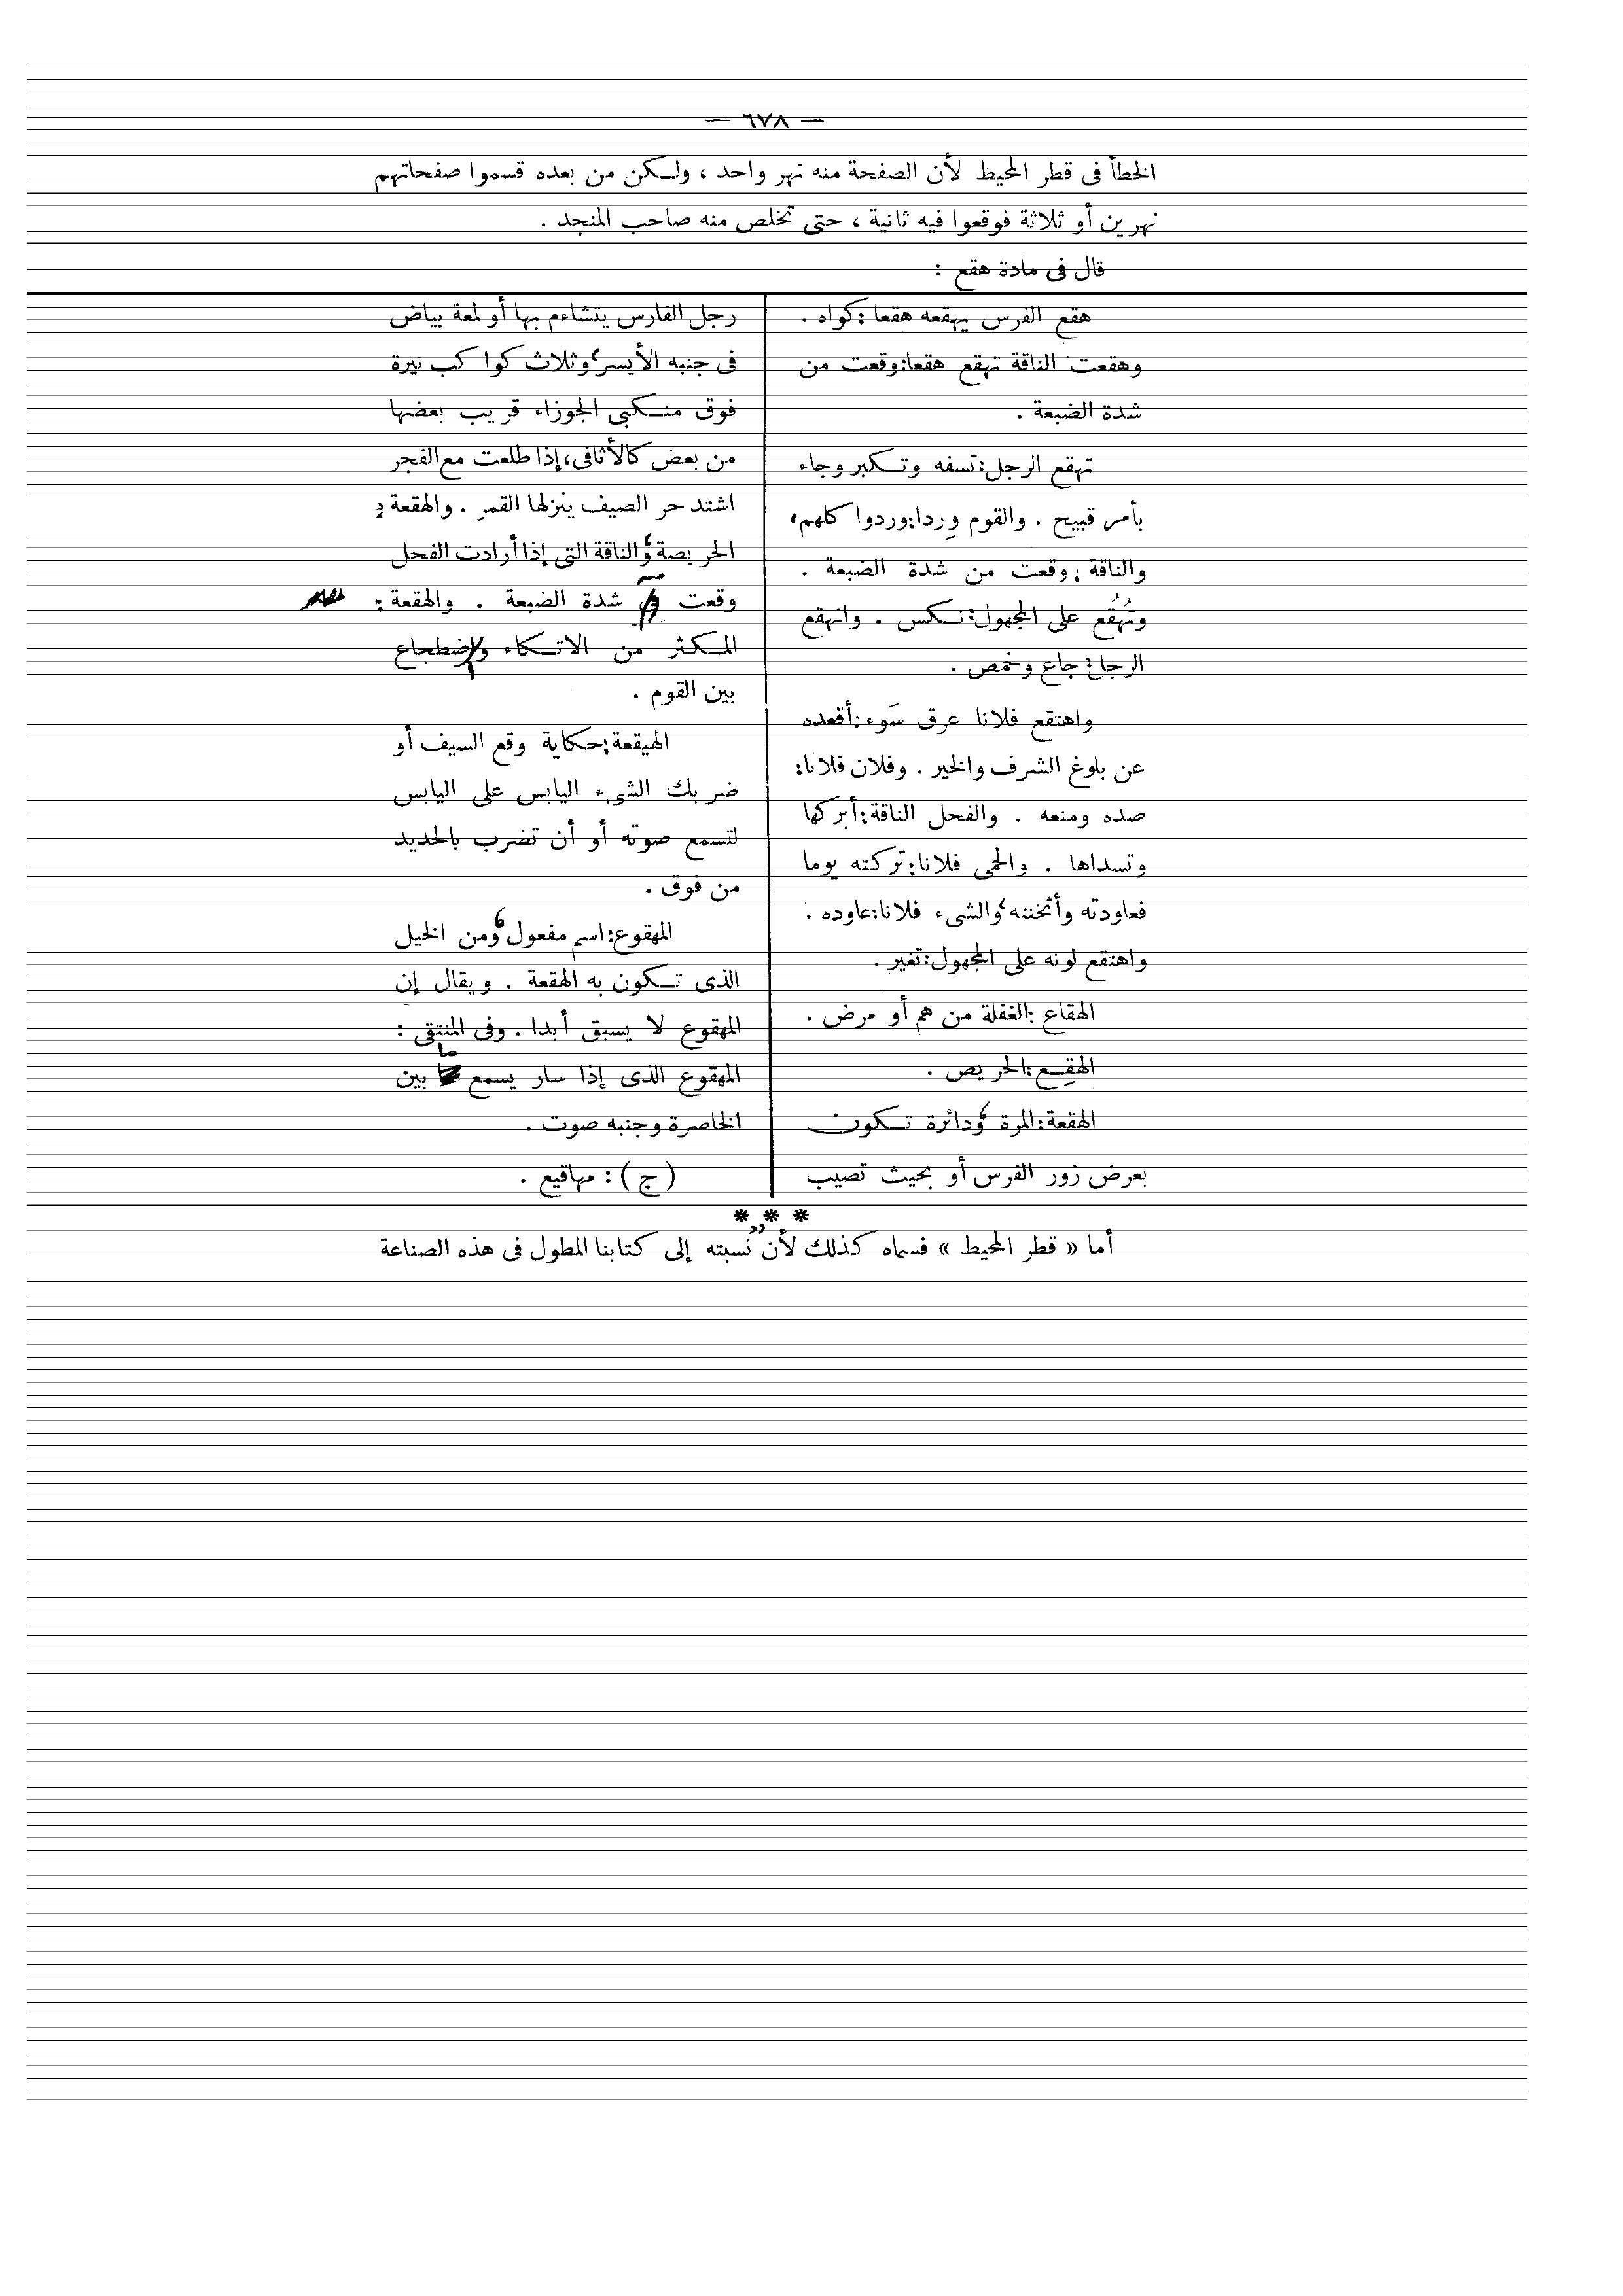 — ٦٧٨ —
الخطأ فى قطر المحيط لأن الصفحة منه نهر واحد ، ولكن من بعده قسموا صفحاتهم
نهرين أو ثلاثة فوقعوا فيه ثانية ، حتى تخلص منه صاحب المنجد .
قال فى مادة هقع :
هقع الفرس يهقعه هقعا : كواه .
وهقعت الناقة تهقع هقعا : وقعت من
شدة الضبعة .
تهقع الرجل : تسفه وتكبر وجاء
بأمر قبيح . والقوم وِردا : وردوا كلهم ،
والناقة : وقعت من شدة الضبعة .
وتُهُقع على المجهول : نكس . وانهقع
الرجل : جاع وخمص .
واهتقع فلانا عرق سَوء : أقعده
عن بلوغ الشرف والخير . وفلان فلانا :
صده ومنعه . والفحل الناقة : أبركها
وتسداها . والحمى فلانا : تركته يوما
فعاودته وأثخنته ، والشىء فلانا : عاوده .
واهتقع لونه على المجهول : تغير .
الهقاع : الغفلة من هم أو مرض .
الهقِع : الحريص .
الهقعة : المرة ، ودائرة تكون
بعرض زور الفرس أو بحيث تصيب
رجل الفارس يتشاءم بها أو لمعة بياض
فى جنبه الأيسر ، وثلاث كواكب نيرة
فوق منكبى الجوزاء قريب بعضها
من بعض كالأثافى ، إذا طلعت مع الفجر
اشتد حر الصيف ينزلها القمر . والهقعة :
الحريصة ، والناقة التى إذا أرادت الفحل
وقعت من شدة الضبعة . والهقعة :
المكثر من الاتكاء والاضطجاع
بين القوم .
الهيقعة : حكاية وقع السيف أو
ضربك الشىء اليابس على اليابس
لتسمع صوته أو أن تضرب بالحديد
من فوق .
المهقوع : اسم مفعول ، ومن الخيل
الذى تكون به الهقعة . ويقال إن
المهقوع لا يسبق أبدا . وفى المنتقى :
المهقوع الذى إذا سار يسمع ما بين
الخاصرة وجنبه صوت .
( ج ) : مهاقيع .
* * *
أما « قطر المحيط » فسماه كذلك لأن " نسبته إلى كتابنا المطول فى هذه الصناعة